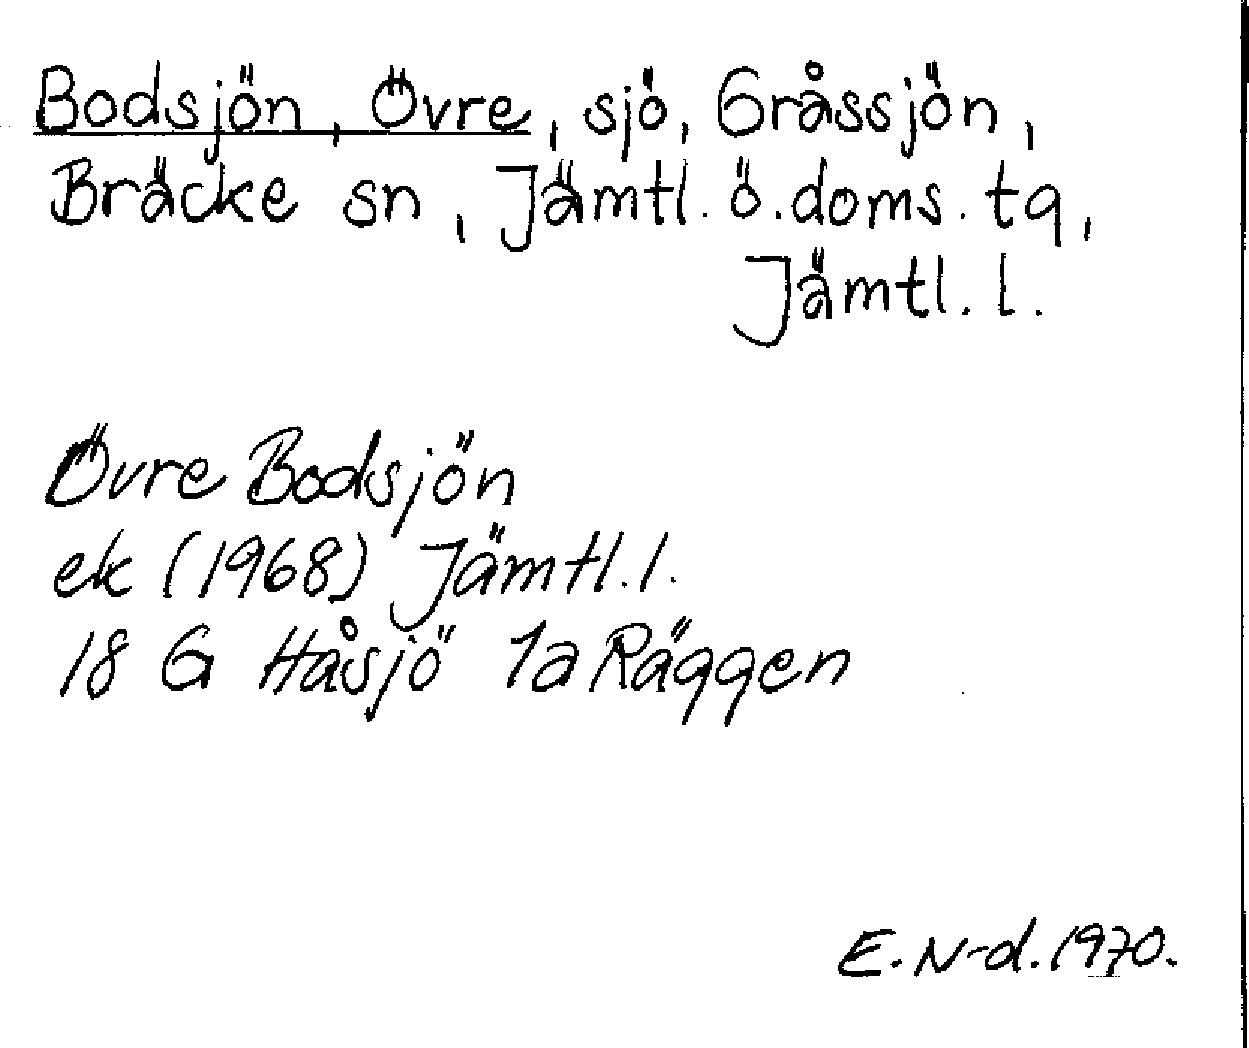 Bodsjön, Övre, sjö, Gråssjön,
Bräcke sn, Jämtl. ö. doms. tg,
Jämtl. l.
Övre Bodsjön
ek (1968) Jämtl. l.
18 G Håsjö 1a Räggen
E. N-d. 1970.